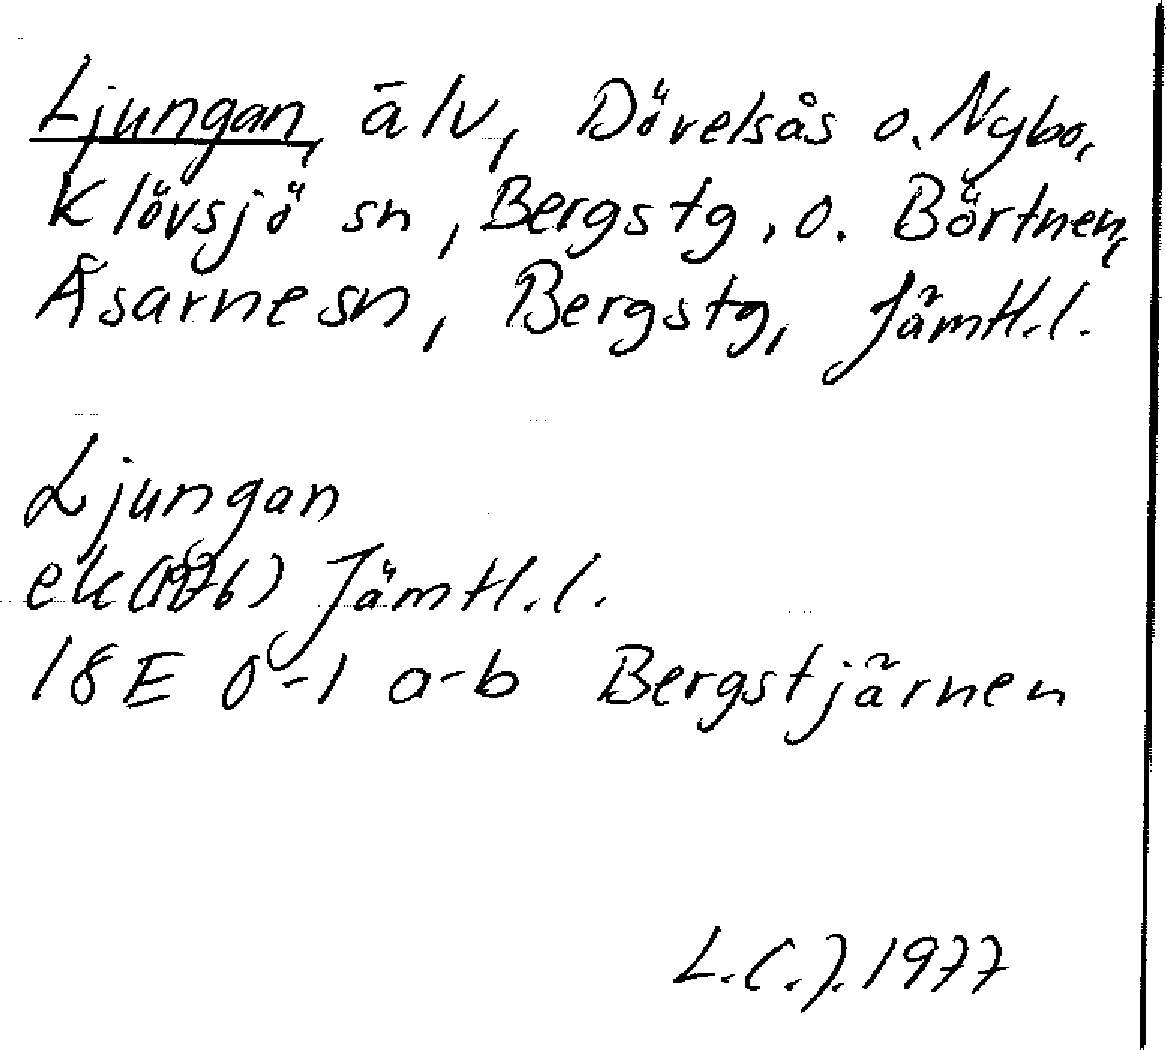 Ljungan, älv, Dövelsås o. Nybo,
Klövsjö sn, Bergs tg, o. Börtnen,
Åsarne sn, Bergs tg, Jämtl.l.
Ljungan
ek(1976) Jämtl.l.
18E 0-1 a-b Bergstjärnen
L.C.J. 1977